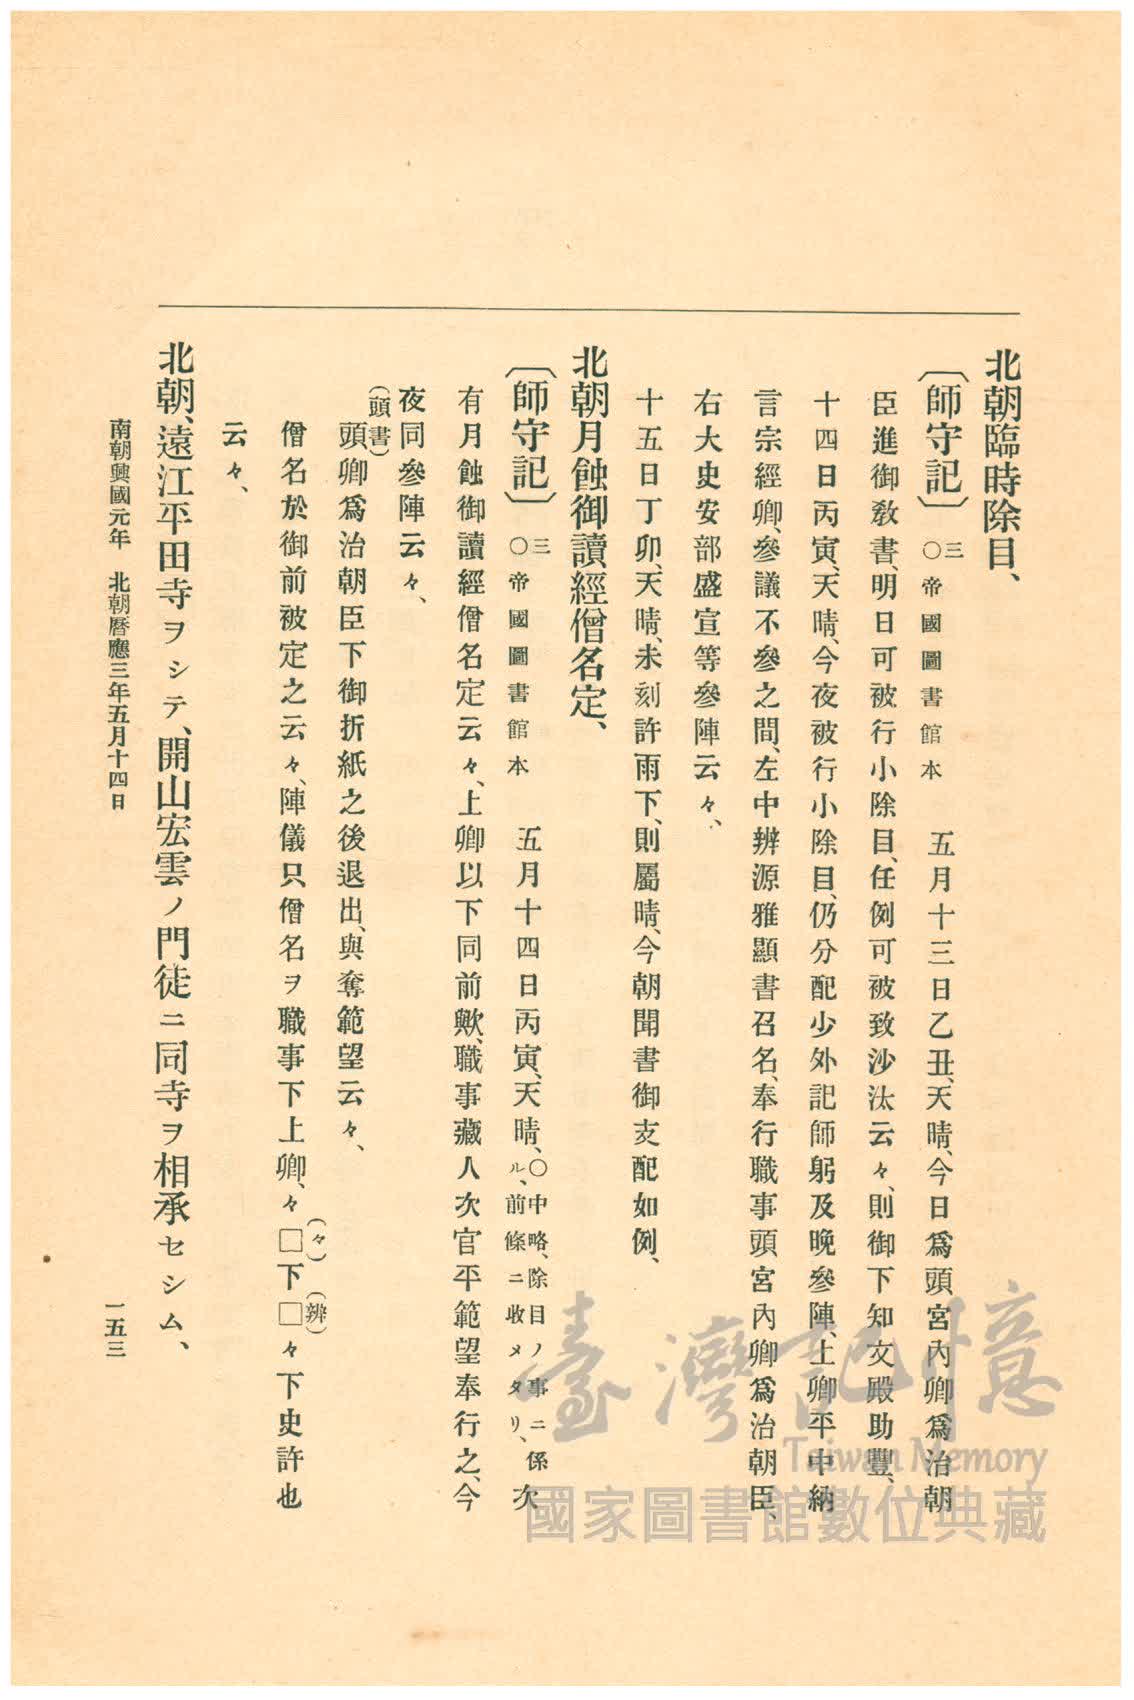 北朝臨時除目、
〔師守記〕 三 ○帝國圖書館本 五月十三日乙丑、天晴、今日爲頭宮內卿爲治朝
臣進御敎書、明日可被行小除目、任例可被致沙汰云々、則御下知文殿助豐、
十四日丙寅、天晴、今夜被行小除目、仍分配少外記師躬及晚參陣、上卿平中納
言宗經卿、參議不參之間、左中辨源雅顯書召名、奉行職事頭宮內卿爲治朝臣、
右大史安部盛宣等參陣云々、
十五日丁卯、天晴、未刻許雨下、則屬晴、今朝聞書御支配如例、
北朝月蝕御讀經僧名定、
〔師守記〕 三 ○帝國圖書館本 五月十四日丙寅、天晴、○中略、除目ノ事ニ係ル、前條ニ收メタリ、次
有月蝕御讀經僧名定云々、上卿以下同前歟、職事藏人次官平範望奉行之、今
夜同參陣云々、
(頭書)
頭卿爲治朝臣下御折紙之後退出、與奪範望云々、
僧名於御前被定之云々、陣儀只僧名ヲ職事下上卿、々□(々)下□(辨)々下史許也
云々、
北朝、遠江平田寺ヲシテ、開山宏雲ノ門徒ニ同寺ヲ相承セシム、
南朝興國元年 北朝曆應三年五月十四日
一五三
臺灣記憶
Taiwan Memory
國家圖書館數位典藏